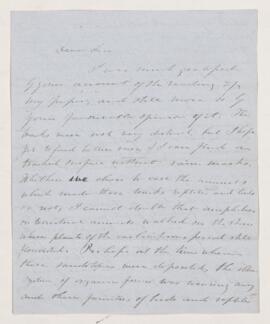 Dear Sir
I was much gratified
by your account of the reading of
my paper, and still more so by
your favorable opinion of it. The
marks were not very distinct but I hope
for
tracked surface without rain marks.
Whether we chose to call the animals
which made those tracks reptiles and birds
or not, I cannot doubt that amphibian
or terrestrial animals walked on the shore
where plants of the carboniferous period still
flourished. Perhaps at the time when
these sandstones were deposited, the
system of organic forms was
and these families of birds and reptiles